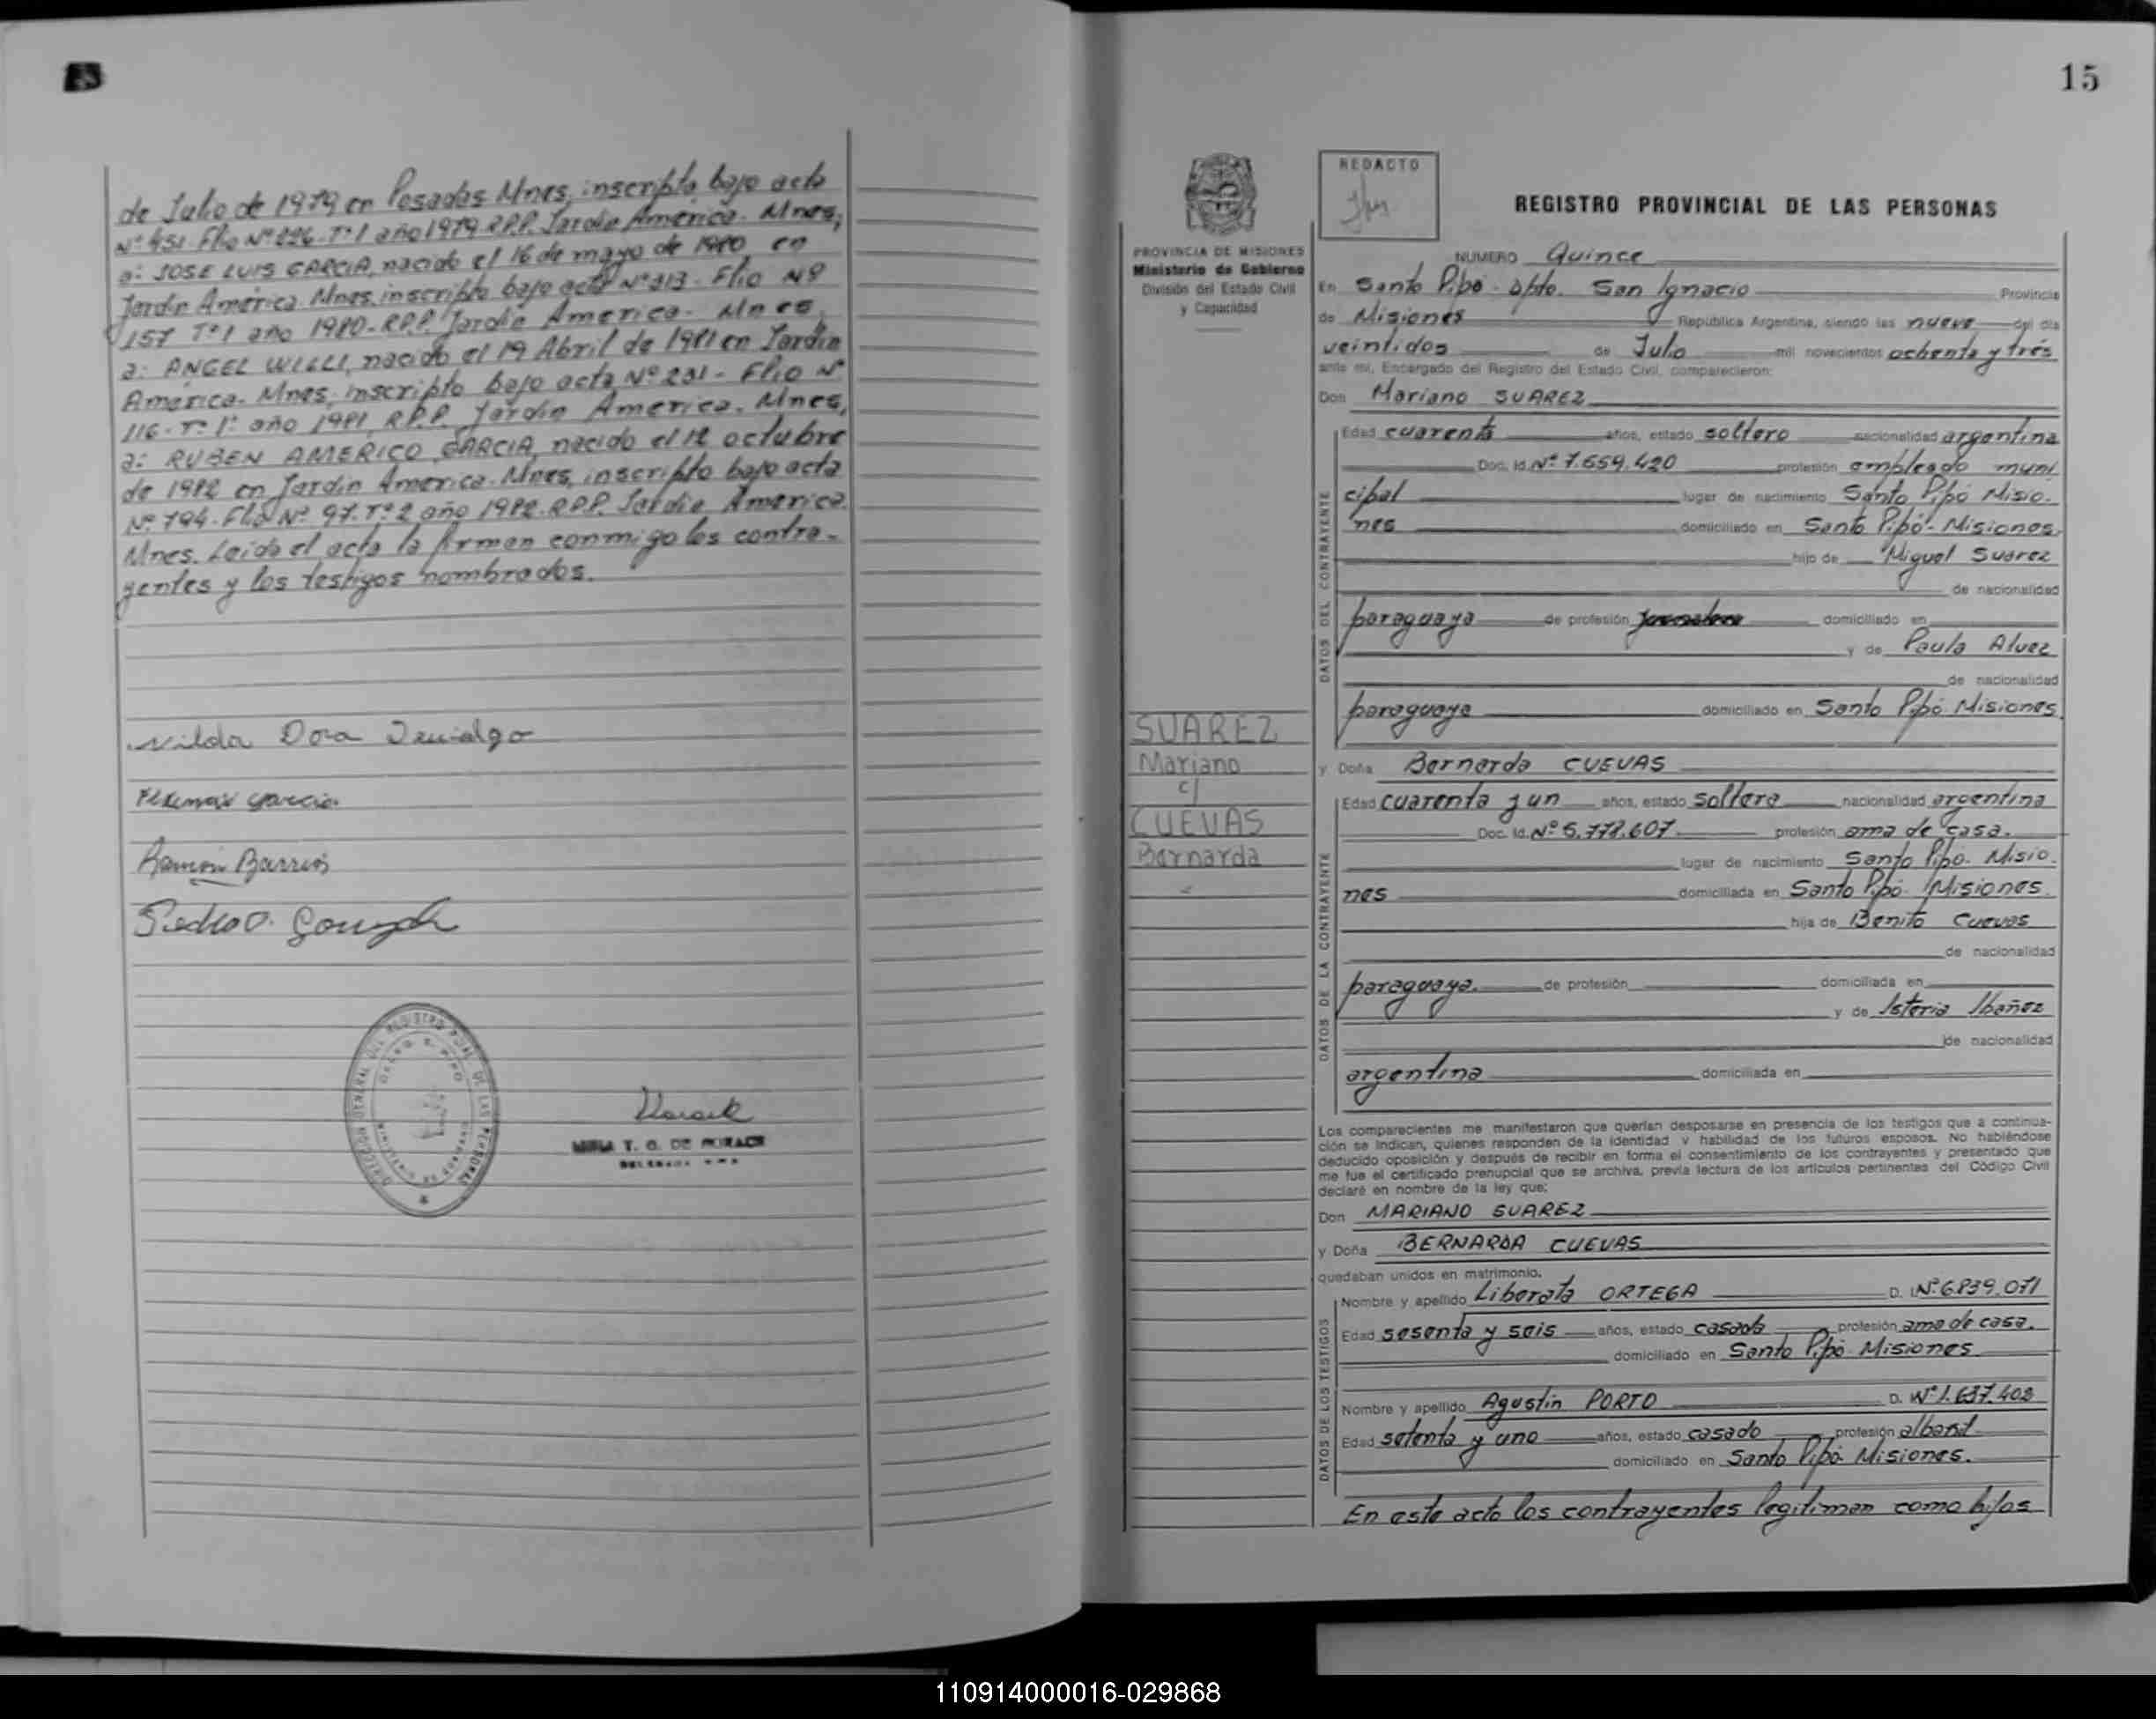 de Julio de 1979 en Posadas Mnes, inscripta bajo acta
Nº 451 Flio Nº 226-Tº1 año 1979 R.P.P. Jardín América. Mnes,
a: JOSE LUIS GARCIA, nacido el 16 de mayo de 1980 en
Jardín América Mnes, inscripto bajo acta Nº 313 - Flio Nº
157 Tº1 año 1980-R.P.P. Jardín America. Mnes,
a: ANGEL WILLI, nacido el 19 Abril de 1981 en Jardín
América- Mnes, inscripto bajo acta Nº 231 - Flio Nº
116- Tº 1º año 1981, R.P.P. Jardín America. Mnes,
a: RUBEN AMERICO GARCIA, nacido el 12 octubre
de 1982 en Jardín America-Mnes, inscripto bajo acta
Nº 794-Flio Nº 97. Tº2 año 1982-R.P.P. Jardín America.
Mnes. Leída el acta la firman conmigo los contra-
yentes y los testigos nombrados.
Nilda Dora
Garcia
Ramón Barrios
Pedro O.
T. O. DE
15
PROVINCIA DE MISIONES
Ministerio de Gobierno
División del Estado Civil
y Capacidad
REDACTO
REGISTRO PROVINCIAL DE LAS PERSONAS
NUMERO Quince
En Santo Pipó - Dpto. San Ignacio Provincia
de Misiones República Argentina, siendo las nueve del día
veintidos de Julio mil novecientos ochenta y trés
ante mí, Encargado del Registro del Estado Civil, comparecieron:
Don Mariano SUAREZ
DATOS DEL CONTRAYENTE
Edad cuarenta años, estado soltero nacionalidad argentina
Doc. Id. Nº 7.659.420 profesión empleado muni
cipal lugar de nacimiento Santo Pipó Misio-
nes domiciliado en Santo Pipó- Misiones.
hijo de Miguel Suarez
de nacionalidad
paraguaya de profesión domiciliado en
y de Paula Alvez
de nacionalidad
paraguaya domiciliado en Santo Pipó Misiones
SUAREZ
Mariano
c/
CUEVAS
Bernarda
y Doña Bernarda CUEVAS
DATOS DE LA CONTRAYENTE
Edad cuarenta y un años, estado soltera nacionalidad argentina
Doc. Id. Nº 5.772.607 profesión ama de casa.
lugar de nacimiento Santo Pipó- Misio-
nes domiciliada en Santo Pipó- Misiones.
hija de Benito Cuevas
de nacionalidad
paraguaya. de profesión domiciliada en
y de Isteria Ibañez
de nacionalidad
argentina domiciliada en
Los comparecientes me manifestaron que querían desposarse en presencia de los testigos que a continua-
ción se indican, quienes responden de la identidad y habilidad de los futuros esposos. No habiéndose
deducido oposición y después de recibir en forma el consentimiento de los contrayentes y presentado que
me fue el certificado prenupcial que se archiva, previa lectura de los artículos pertinentes del Código Civil
declaré en nombre de la ley que:
Don MARIANO SUAREZ
y Doña BERNARDA CUEVAS
quedaban unidos en matrimonio.
DATOS DE LOS TESTIGOS
Nombre y apellido Liberata ORTEGA D. I. Nº 6.839.071
Edad sesenta y seis años, estado casada profesión ama de casa.
domiciliado en Santo Pipó- Misiones
Nombre y apellido Agustín PORTO D. Nº 1.637.402
Edad setenta y uno años, estado casado profesión albañil
domiciliado en Santo Pipó. Misiones.
En este acto los contrayentes legitiman como hijos
110914000016-029868